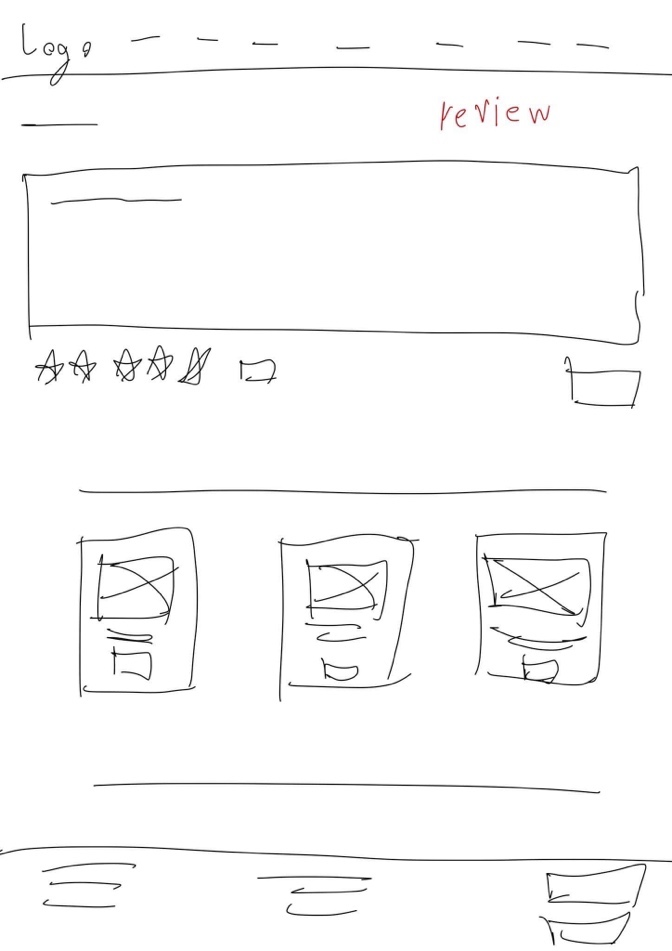 Logo
review